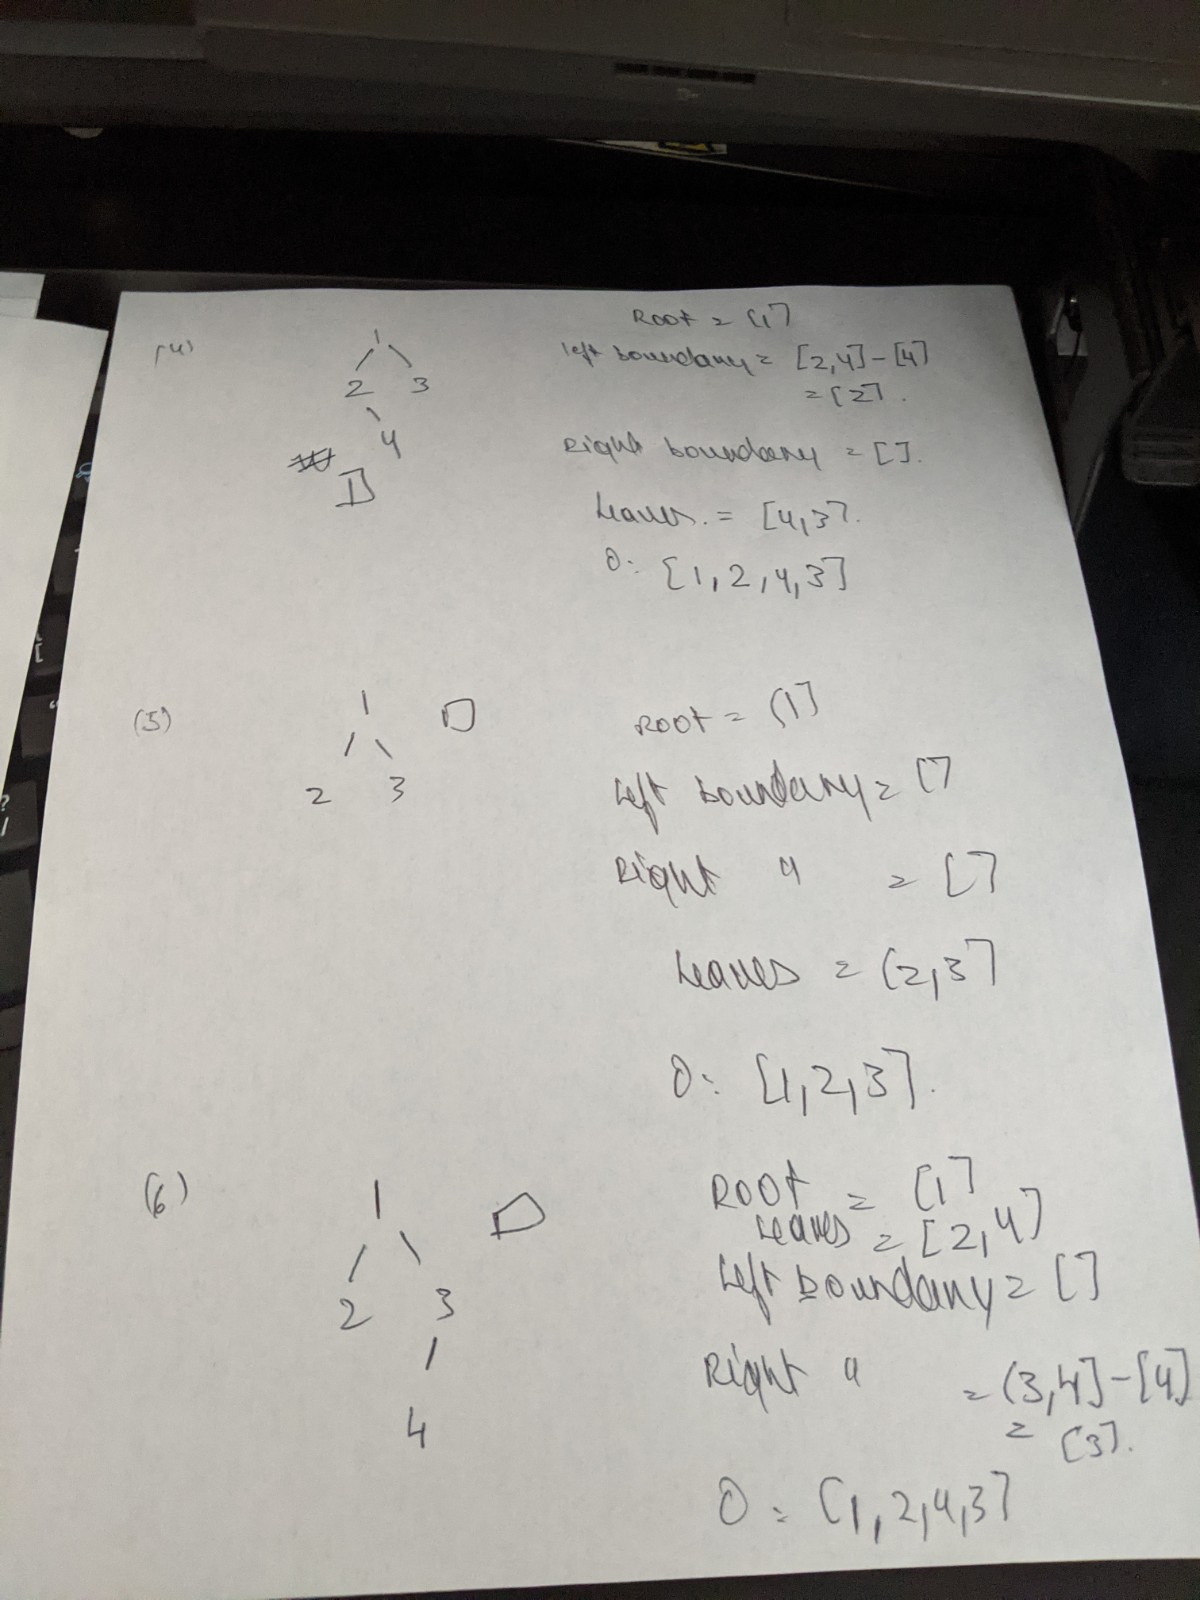 (4)
1
2 3
4
Root = [1]
left boundary = [2,4]-[4]
= [2].
Right boundary = [].
Leaves. = [4,3].
O: [1,2,4,3]
(5)
1
2 3
Root = [1]
Left boundary = []
Right " = []
Leaves = [2,3]
O: [1,2,3].
(6)
1
2 3
4
Root = [1]
Leaves = [2,4]
Left boundary = []
Right " = [3,4]-[4]
= [3].
O: [1,2,4,3]